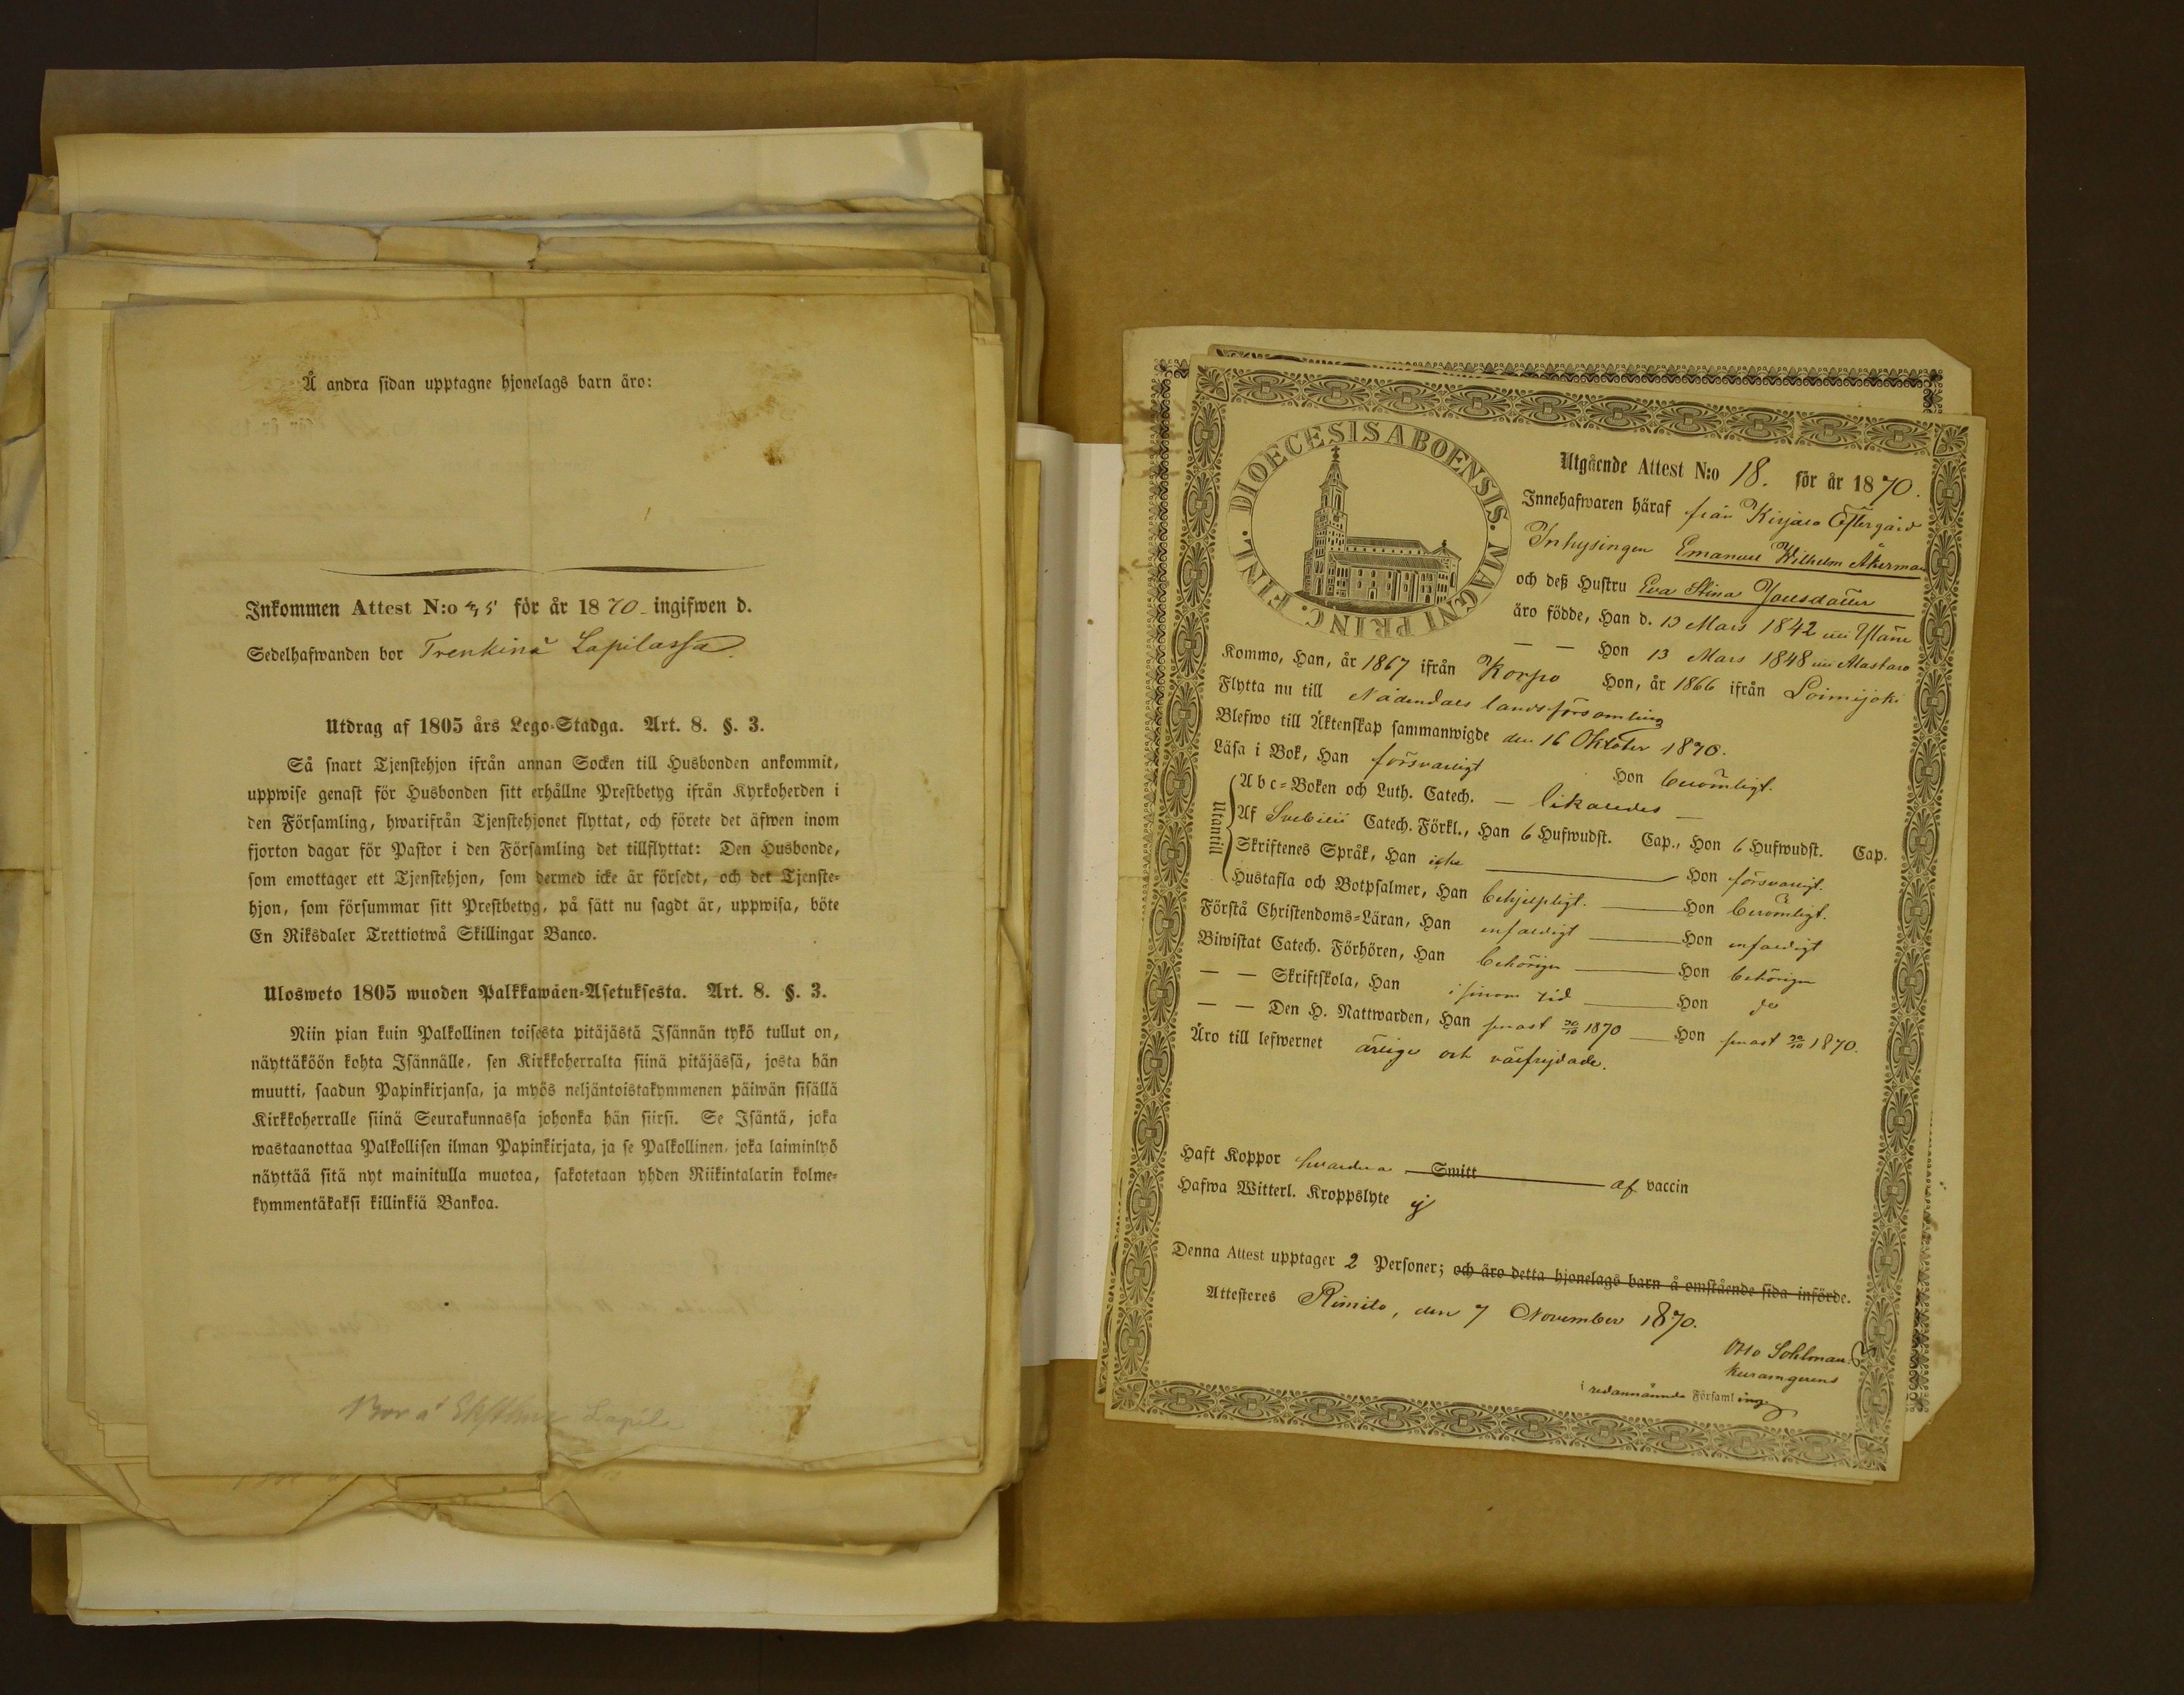 Å andra sidan upptagne hjonelags barn äro:
Inkommen Attest N:o 35 för år 1870 ingifwen d.
Sedelhafwanden bor Trenkinä Lapilassa.
Utdrag af 1805 års Lego-Stadga. Art. 8. §. 3.
Så snart Tjenstehjon ifrån annan Socken till Husbonden ankommit,
uppwise genast för Husbonden sitt erhållne Prestbetyg ifrån Kyrkoherden i
den Församling, hwarifrån Tjenstehjonet flyttat, och förete det äfwen inom
fjorton dagar för Pastor i den Församling det tillflyttat: Den Husbonde,
som emottager ett Tjenstehjon, som dermed icke är försedt, och det Tjenste-
hjon, som försummar sitt Prestbetyg, på sätt nu sagdt är, uppwisa, böte
En Riksdaler Trettiotwå Skillingar Banco.
Ulosweto 1805 wuoden Palkkawäen-Asetuksesta. Art. 8. §. 3.
Niin pian kuin Palkollinen toisesta pitäjästä Isännän tykö tullut on,
näyttäköön kohta Isännälle, sen Kirkkoherralta siinä pitäjässä, josta hän
muutti, saadun Papinkirjansa, ja myös neljäntoistakymmenen päiwän sisällä
Kirkkoherralle siinä Seurakunnassa johonka hän siirsi. Se Isäntä, joka
wastaanottaa Palkollisen ilman Papinkirjata, ja se Palkollinen, joka laiminlyö
näyttää sitä nyt mainitulla muotoa, sakotetaan yhden Riikintalarin kolme-
kymmentäkaksi killinkiä Bankoa.
Bor å Lapila
DIOECESIS ABOENSIS. MAGNI PRINC. FINL.
Utgående Attest N:o 18. för år 1870.
Innehafwaren häraf från Kirjais Östergård
Inhysingen Emanuel Wilhelm Åkerman
och deß Hustru Eva Stina Joelsdotter
äro födde, Han d. 13 Mars 1842 uti Yläne
— — Hon 13 Mars 1848 uti Alastaro
Kommo, Han, år 1867 ifrån Korpo Hon, år 1866 ifrån Loimijoki
Flytta nu till Nådendals landsförsamling
Blefwo till Äktenskap sammanwigde den 16 Oktober 1870.
Läsa i Bok, Han försvarligt Hon berömligt.
Utantill
Abc-Boken och Luth. Catech. — likaledes —
Af Svebilii Catech. Förkl., Han 6 Hufwudst. Cap., Hon 6 Hufwudst. Cap.
Skriftenes Språk, Han icke — Hon försvarligt.
Hustafla och Botpsalmer, Han behjelpligt. — Hon berömligt.
Förstå Christendoms-Läran, Han enfaldigt — Hon enfaldigt
Biwistat Catech. Förhören, Han behörigen — Hon behörigen
— — Skriftskola, Han i sinom tid — Hon do
— — Den H. Nattwarden, Han senast 30/10 1870 — Hon senast 30/10 1870.
Äro till lefwernet ärlige och välfrejdade.
Haft Koppor hvardera Smitt af vaccin
Hafwa Witterl. Kroppslyte ej
Denna Attest upptager 2 Personer; och äro detta hjonelags barn å omstående sida införde.
Attesteres Rimito, den 7 November 1870.
Otto Sohlman.
i redannämnde Församling